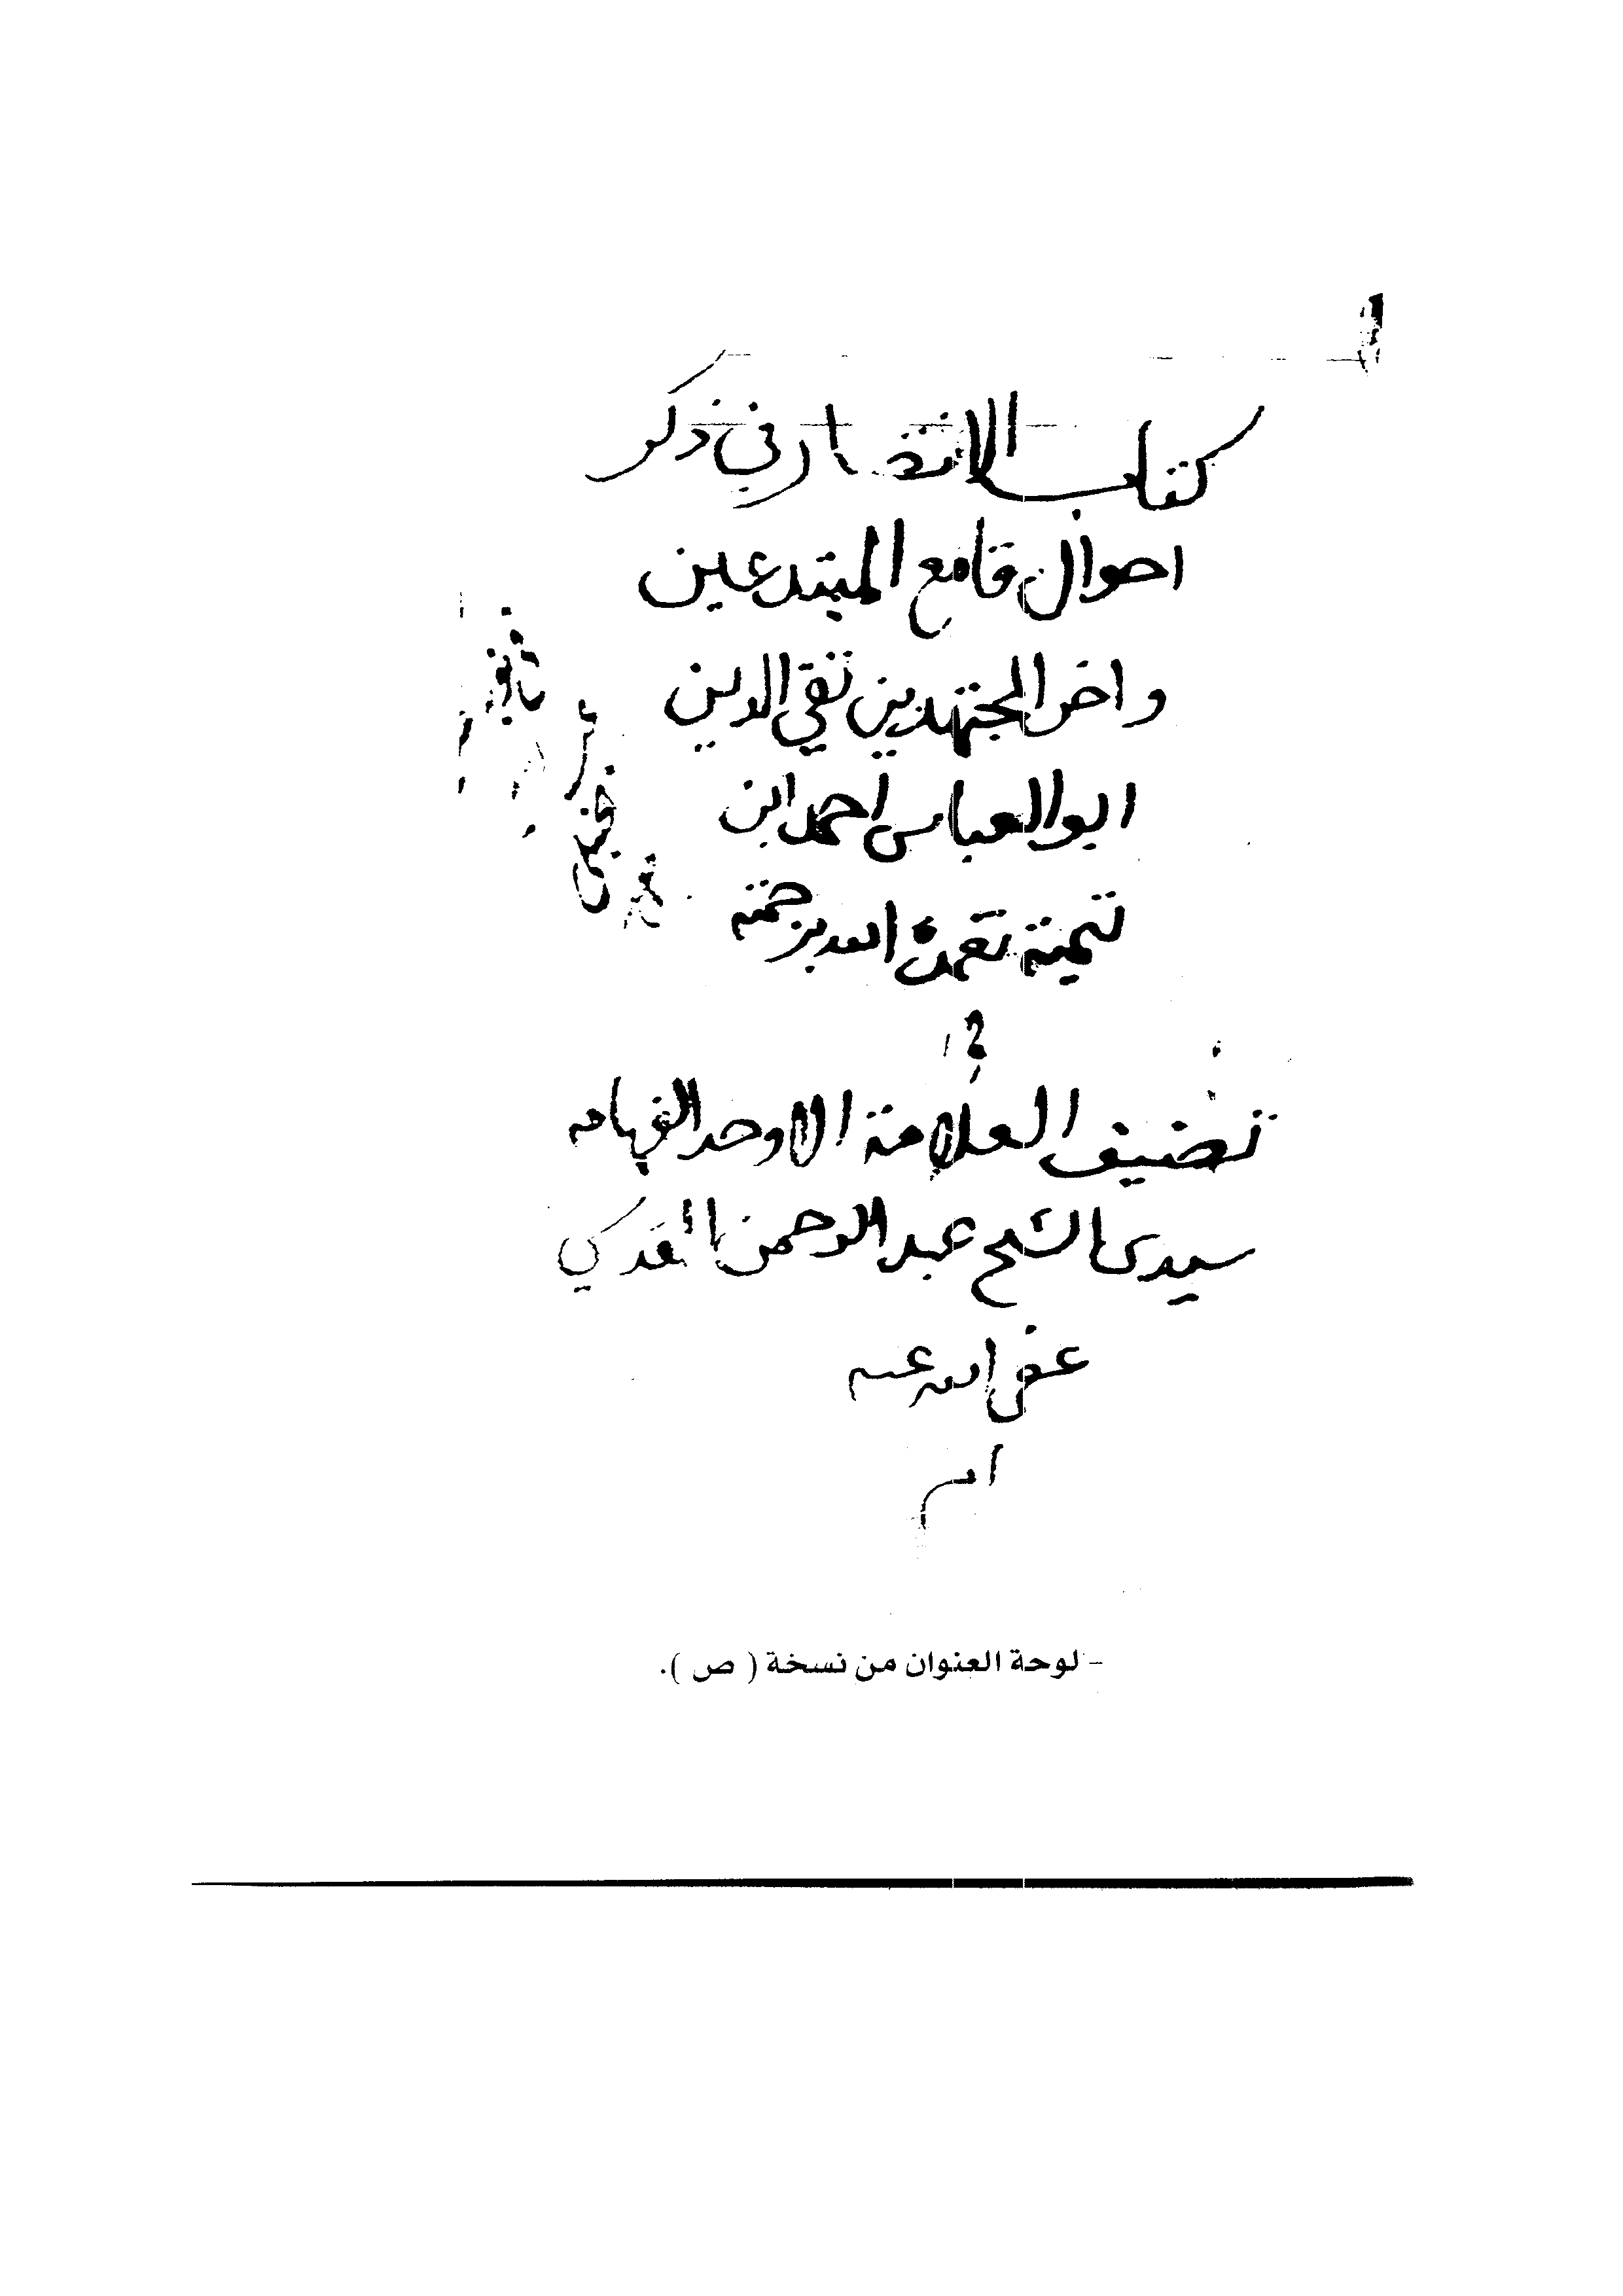 كتاب الانتصار في ذكر
احوال قامع المبتدعين
واخر المجتهدين تقي الدين
ابو العباس احمد ابن
تيمية تغمده الله برحمته
تصنيف العلامة الاوحد الفهامه
سيدى الشيخ عبد الرحمن المقدسي
عفى الله عنه
ام
- لوحة العنوان من نسخة ( ص ).